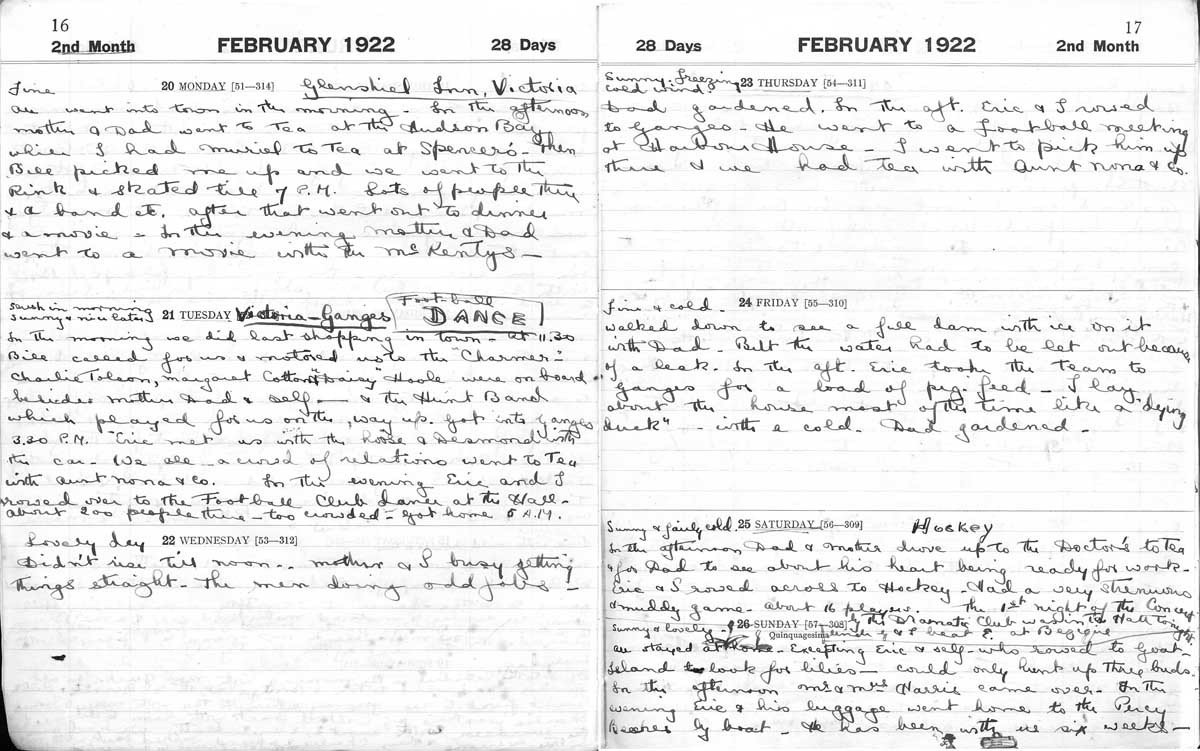 16
2nd Month FEBRUARY 1922 28 Days
Fine 20 MONDAY [51—314] Glenshiel Inn, Victoria
All went into town in the morning - In the afternoon
mother & Dad went to Tea at the Hudson Bay
while I had Muriel to Tea at Spencer's - Then
Bill picked me up and we went to the
Rink & skated till 7 P.M. Lots of people there
& a band etc. After that went out to dinner
& a movie - In the evening mother & Dad
went to a movie with the McKentys -
in morning
Sunny & nice later 21 TUESDAY Victoria - Ganges Football DANCE
In the morning we did last shopping in town - At 11.30
Bill called for us & motored us to the "Charmer" -
Charlie Tolson, Margaret Cotton, "Daisy" Hoole were on board
besides mother Dad & self - & the Hunt Band
which played for us on the way up. Got into Ganges
3.30 P.M. Eric met us with the horse & Desmond with
the car - We all - a crowd of relations went to Tea
with Aunt Nona & Co. In the evening Eric and I
rowed over to the Football Club dance at the Hall -
about 200 people there - too crowded - got home 5 A.M.
Lovely day 22 WEDNESDAY [53—312]
Didn't rise till noon - mother & I busy getting
things straight - The men doing odd jobs -
17
28 Days FEBRUARY 1922 2nd Month
Sunny - freezing
cold wind 23 THURSDAY [54—311]
Dad gardened. In the aft. Eric & I rowed
to Ganges - He went to a football meeting
at Harbour House - I went to pick him up
there & we had tea with Aunt Nona & Co.
Fine & cold. 24 FRIDAY [55—310]
Walked down to see a full dam with ice on it
with Dad. But the water had to be let out because
of a leak. In the aft. Eric took the team to
Ganges for a load of pig feed - I lay
about the house most of the time like a "dying
duck" - with a cold. Dad gardened -
Sunny & fairly cold. 25 SATURDAY [56—309] Hockey
In the afternoon Dad & mother drove up to the Doctor's to tea
& for Dad to see about his heart being ready for work -
Eric & I rowed across to Hockey - Had a very strenuous
& muddy game - about 16 players. The 1st night of the Concert
by the Dramatic Club was in the Hall tonight
Sunny & lovely - 26 SUNDAY [57—308] & I beat E. at Bezique
Quinquagesima
All stayed at home - Excepting Eric & self - who rowed to Goat
Island to look for lilies - could only hunt up three buds.
In the afternoon Mr & Mrs Harris came over - In the
evening Eric & his luggage went home to the Percy
Beeches by boat - He has been with us six weeks -